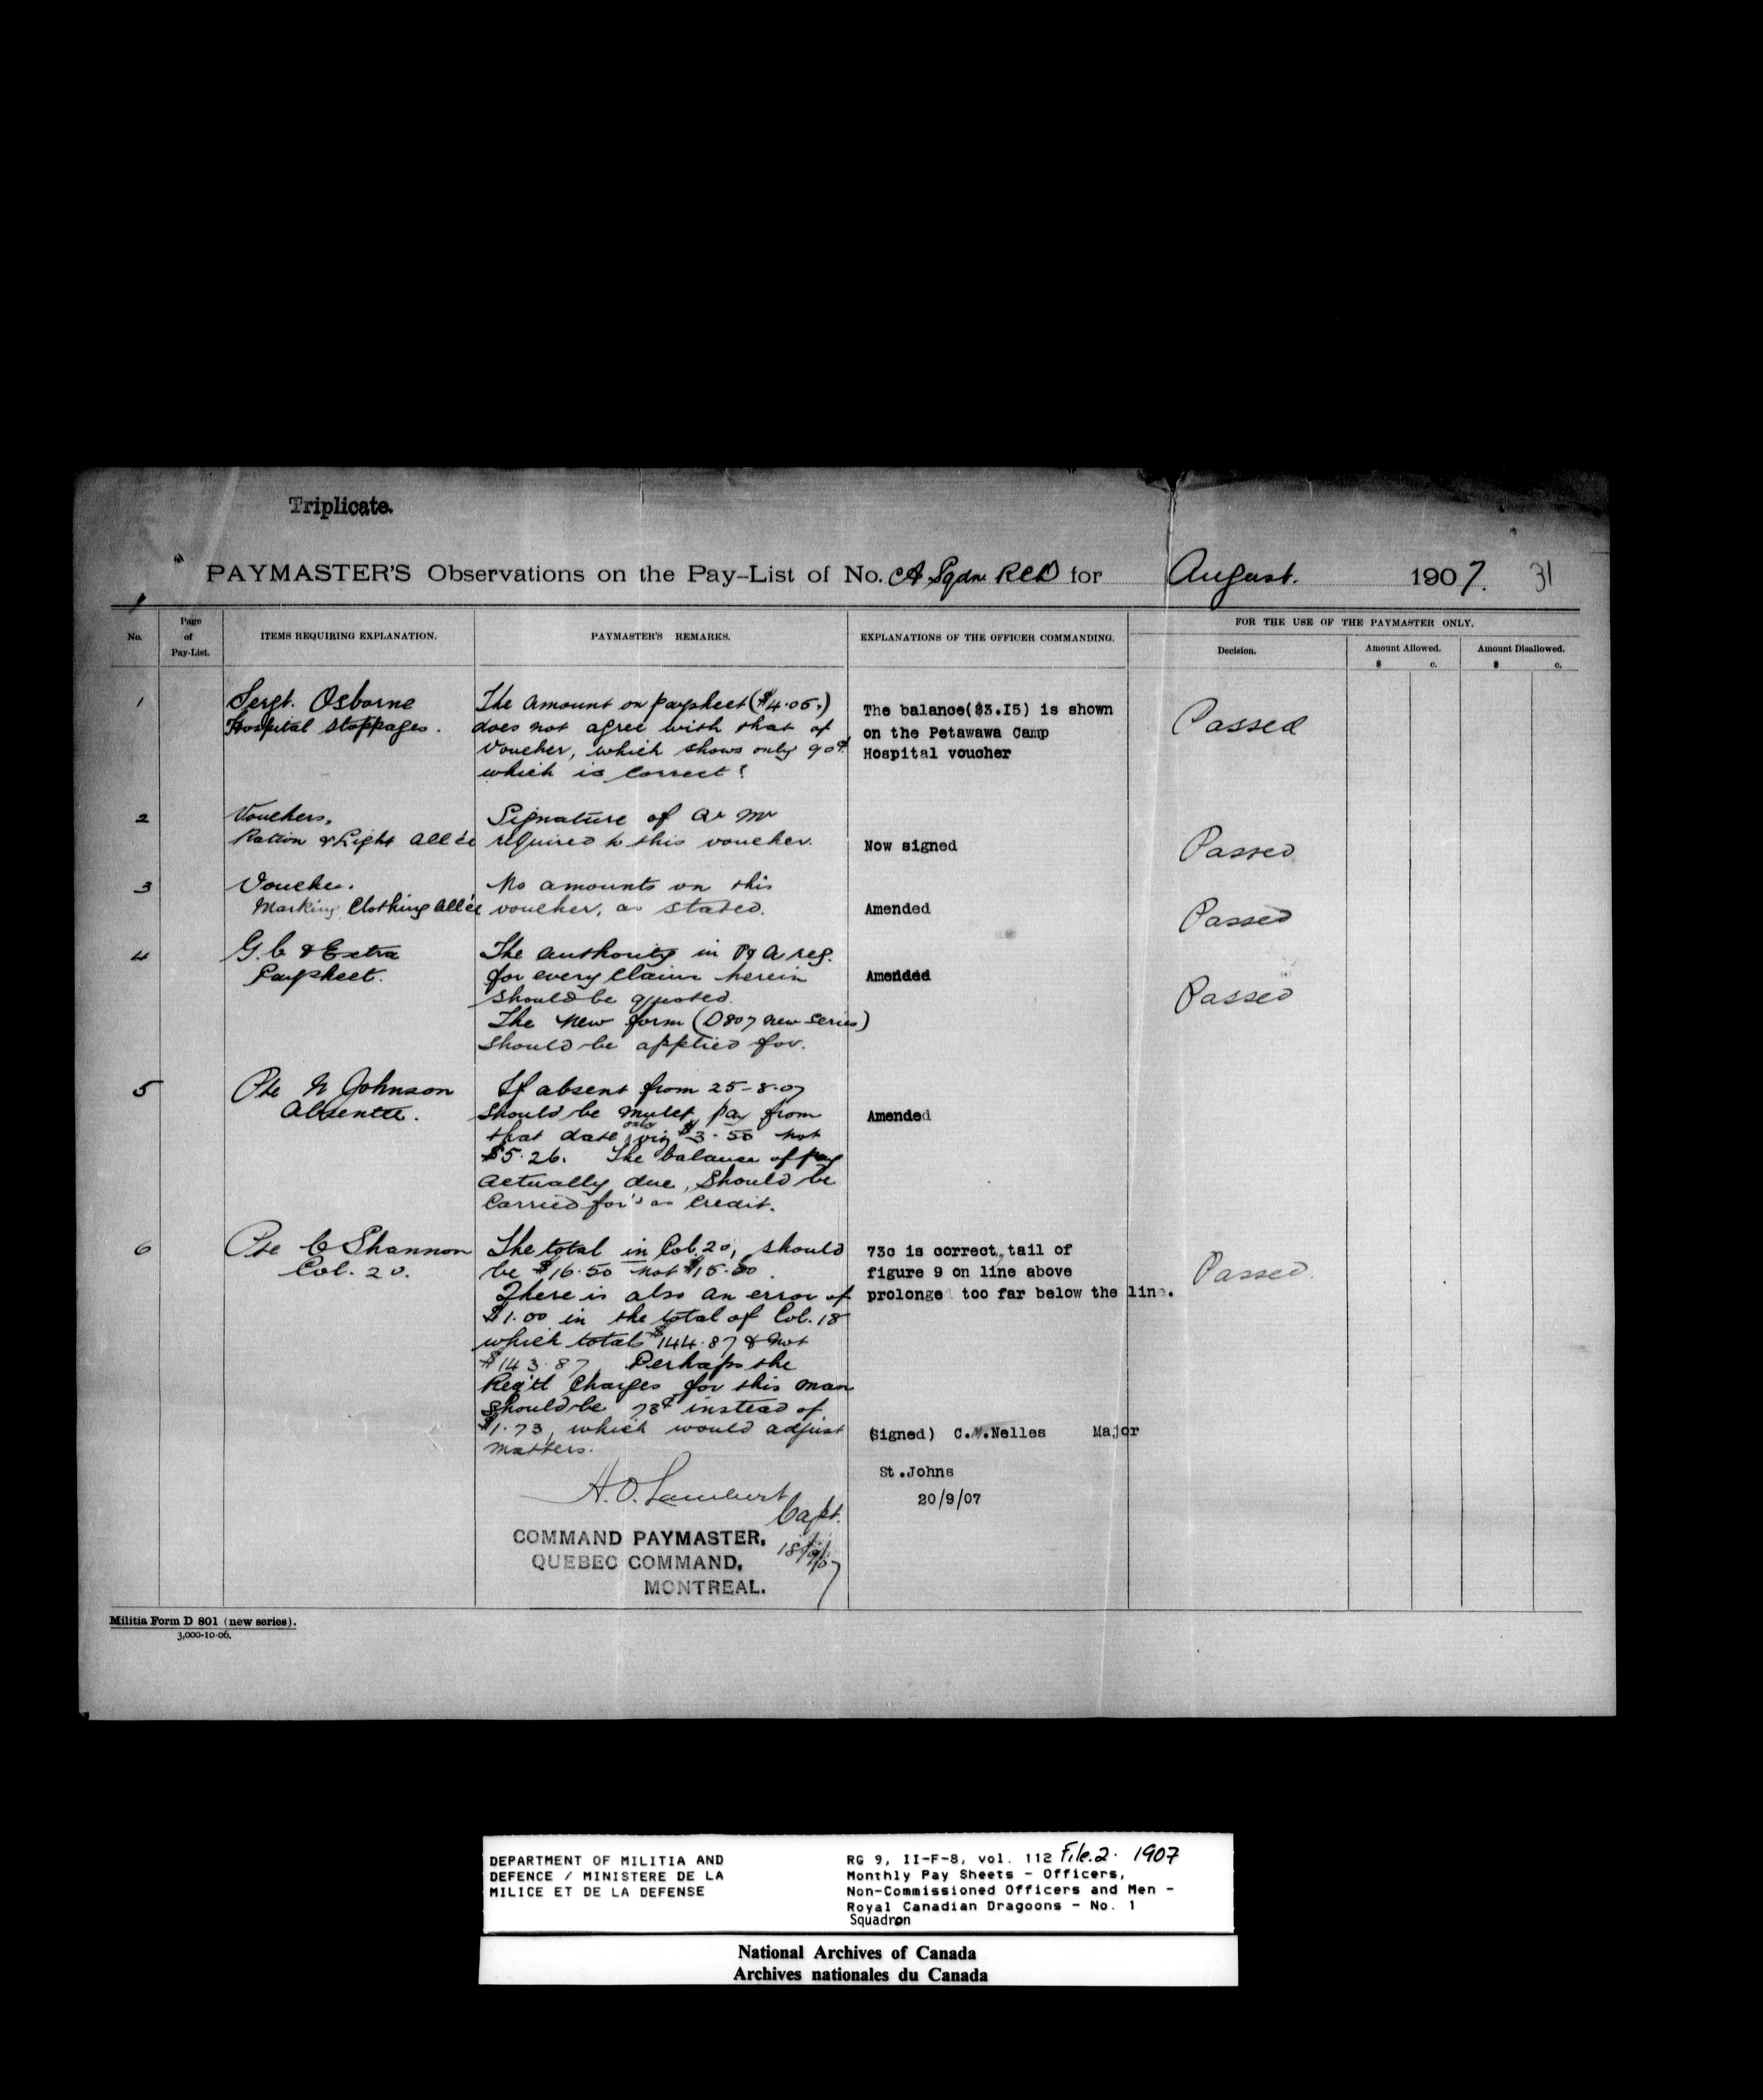 Triplicate.
PAYMASTER'S Observations on the Pay-List of No. "A" Sqdn RCD for August. 1907. 31
No.
Page of Pay-List.
ITEMS REQUIRING EXPLANATION.
PAYMASTER'S REMARKS.
EXPLANATIONS OF THE OFFICER COMMANDING.
FOR THE USE OF THE PAYMASTER ONLY.
Decision.
Amount Allowed.
Amount Disallowed.
$ c.
$ c.
1
Sergt. Osborne
Hospital Stoppages.
The amount on paysheet ($4.05.)
does not agree with that of
Voucher, which shows only 90¢.
which is correct?
The balance($3.I5) is shown
on the Petawawa Camp
Hospital voucher
Passed
2
Vouchers.
Ration & Light Allce
Signature of Qr Mr
required to this voucher.
Now signed
Passed
3
Voucher.
Marking Clothing Allce
No amounts on this
voucher, as stated.
Amended
Passed
4
G.C & Extra
Paysheet.
The authority in P & A reg.
for every claim herein
should be quoted.
The New form (D807 new series)
should be applied for.
Amended
Passed
5
Pte N Johnson
Absentee.
If absent from 25-8-07
should be mulct pay from
that date only viz $3.50 not
$5.26. The balance of pay
actually due, should be
carried for'd as credit.
Amended
6
Pte C Shannon
Col. 20.
The total in Col. 20, should
be $16.50 not $15.50.
There is also an error of
$1.00 in the total of Col. 18
which totals $144.87 & not
$143.87. Perhaps the
Reg'tl Charges for this man
should be 73¢ instead of
$1.73, which would adjust
matters.
73c is correct, tail of
figure 9 on line above
prolonged too far below the line.
Passed.
(Signed) C.M.Nelles Major
St.Johns
20/9/07
H.O. Lambert
Capt.
COMMAND PAYMASTER,
QUEBEC COMMAND,
MONTREAL.
18/9/07
Militia Form D 801 (new series).
3,000-10-06.
DEPARTMENT OF MILITIA AND
DEFENCE / MINISTERE DE LA
MILICE ET DE LA DEFENSE
RG 9, II-F-8, vol. 112 File.2. 1907
Monthly Pay Sheets - Officers,
Non-Commissioned Officers and Men -
Royal Canadian Dragoons - No. 1
Squadron
National Archives of Canada
Archives nationales du Canada